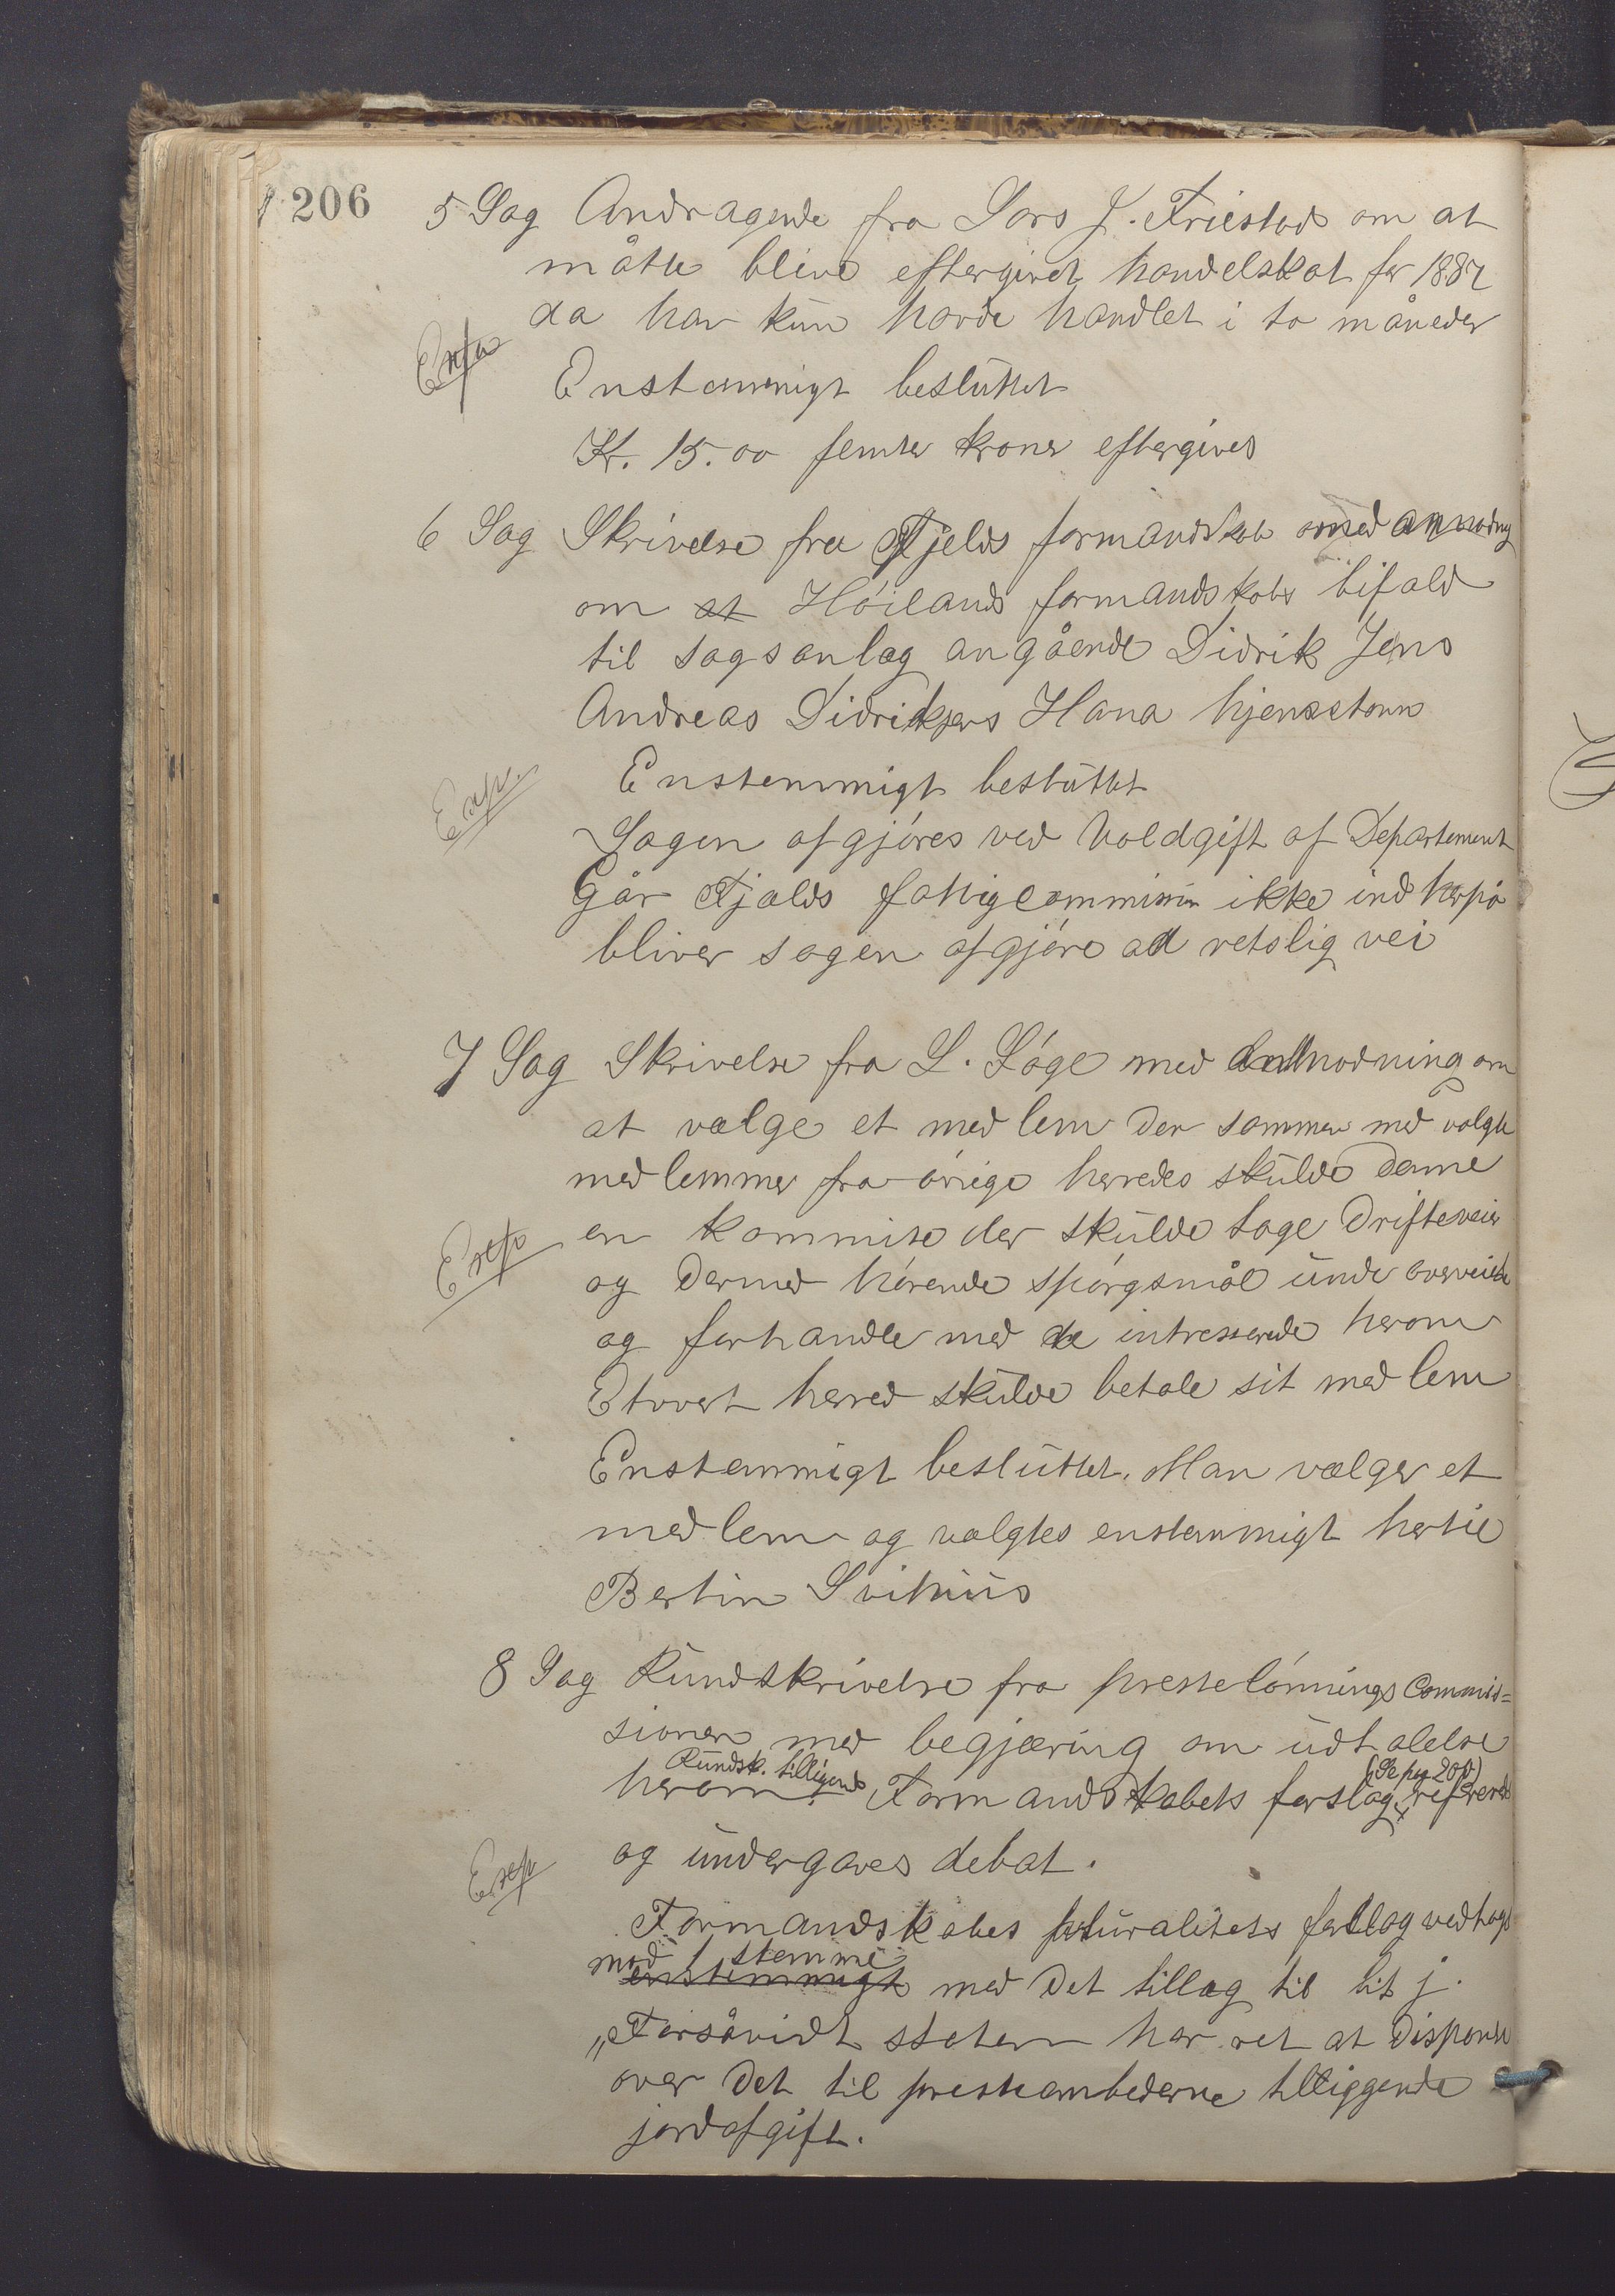 206
5 Sag Andragende fra Lars J. Friestad om at
måtte blive eftergivet handelskat for 1887
da han kun havde handlet i to måneder
Exp
Enstemmigt besluttet
Kr. 15.00 femten kroner eftergives
6 Sag Skrivelse fra Fjelds formandskab med anmodning
om at Höilands formandskabs bifald
til sagsanlæg angående Didrik Jens
Andreas Didriksens Hana hjemstavn
Exp.
Enstemmigt besluttet
Sagen afgjöres ved Voldgift af Departement
Går Fjælds fattigcommission ikke ind herpå
bliver sagen afgjöre ad retslig vei
7 Sag Skrivelse fra L. Löge med anmodning om
at vælge et medlem der sammen med valgte
medlemmer fra övrige herreds skulde danne
Exp
en kommite der skulde tage Drifteveier
og dermed hörende spörgsmål under overveielse
og forhandle med de intresserede herom
Ethvert herred skulde betale sit medlem
Enstemmigt besluttet. Man vælger et
medlem og valgtes enstemmigt hertil
Bertin Svihus
8 Sag Rundskrivelse fra presselönnings Commis=
sionen med begjæring om udtalelse
herom. Rundsk. tilligemed Formandskabets forslag (Se pag 200) refereredes
og undergaves debat.
Exp
Formandskabes pluralitets forslag vedtags
med 1 stemme
enstemmigt med det tillæg til lit j.
„Forsåvidt staten har ret at disponere
over det til presteembederne tilliggende
jordafgift.